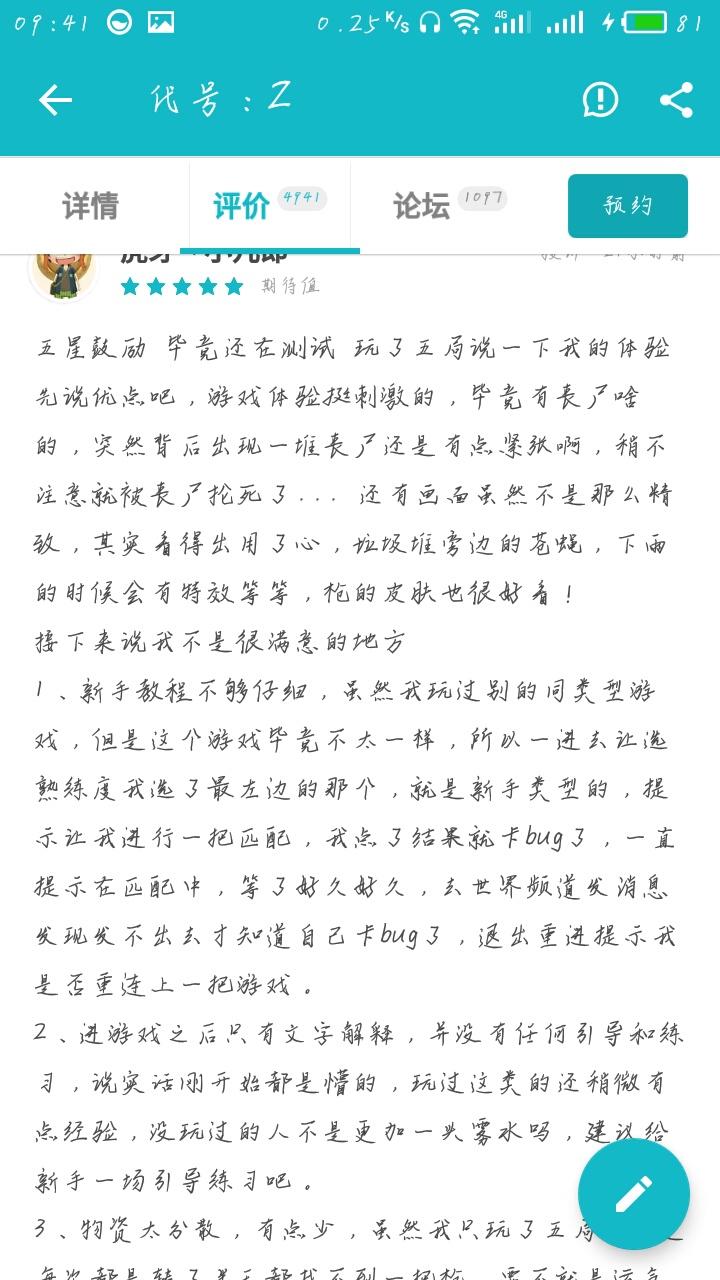 09:41 0.25 K/s 4G 81
代号：Z
详情 评价 4941 论坛 1097 预约
期待值
五星鼓励 毕竟还在测试 玩了五局说一下我的体验
先说优点吧，游戏体验挺刺激的，毕竟有丧尸啥
的，突然背后出现一堆丧尸还是有点紧张啊，稍不
注意就被丧尸抡死了... 还有画面虽然不是那么精
致，其实看得出用了心，垃圾堆旁边的苍蝇，下雨
的时候会有特效等等，枪的皮肤也很好看！
接下来说我不是很满意的地方
1、新手教程不够仔细，虽然我玩过别的同类型游
戏，但是这个游戏毕竟不太一样，所以一进去让选
熟练度我选了最左边的那个，就是新手类型的，提
示让我进行一把匹配，我点了结果就卡bug了，一直
提示在匹配中，等了好久好久，去世界频道发消息
发现发不出去才知道自己卡bug了，退出重进提示我
是否重连上一把游戏。
2、进游戏之后只有文字解释，并没有任何引导和练
习，说实话刚开始都是懵的，玩过这类的还稍微有
点经验，没玩过的人不是更加一头雾水吗，建议给
新手一场引导练习吧。
3、物资太分散，有点少，虽然我只玩了五局